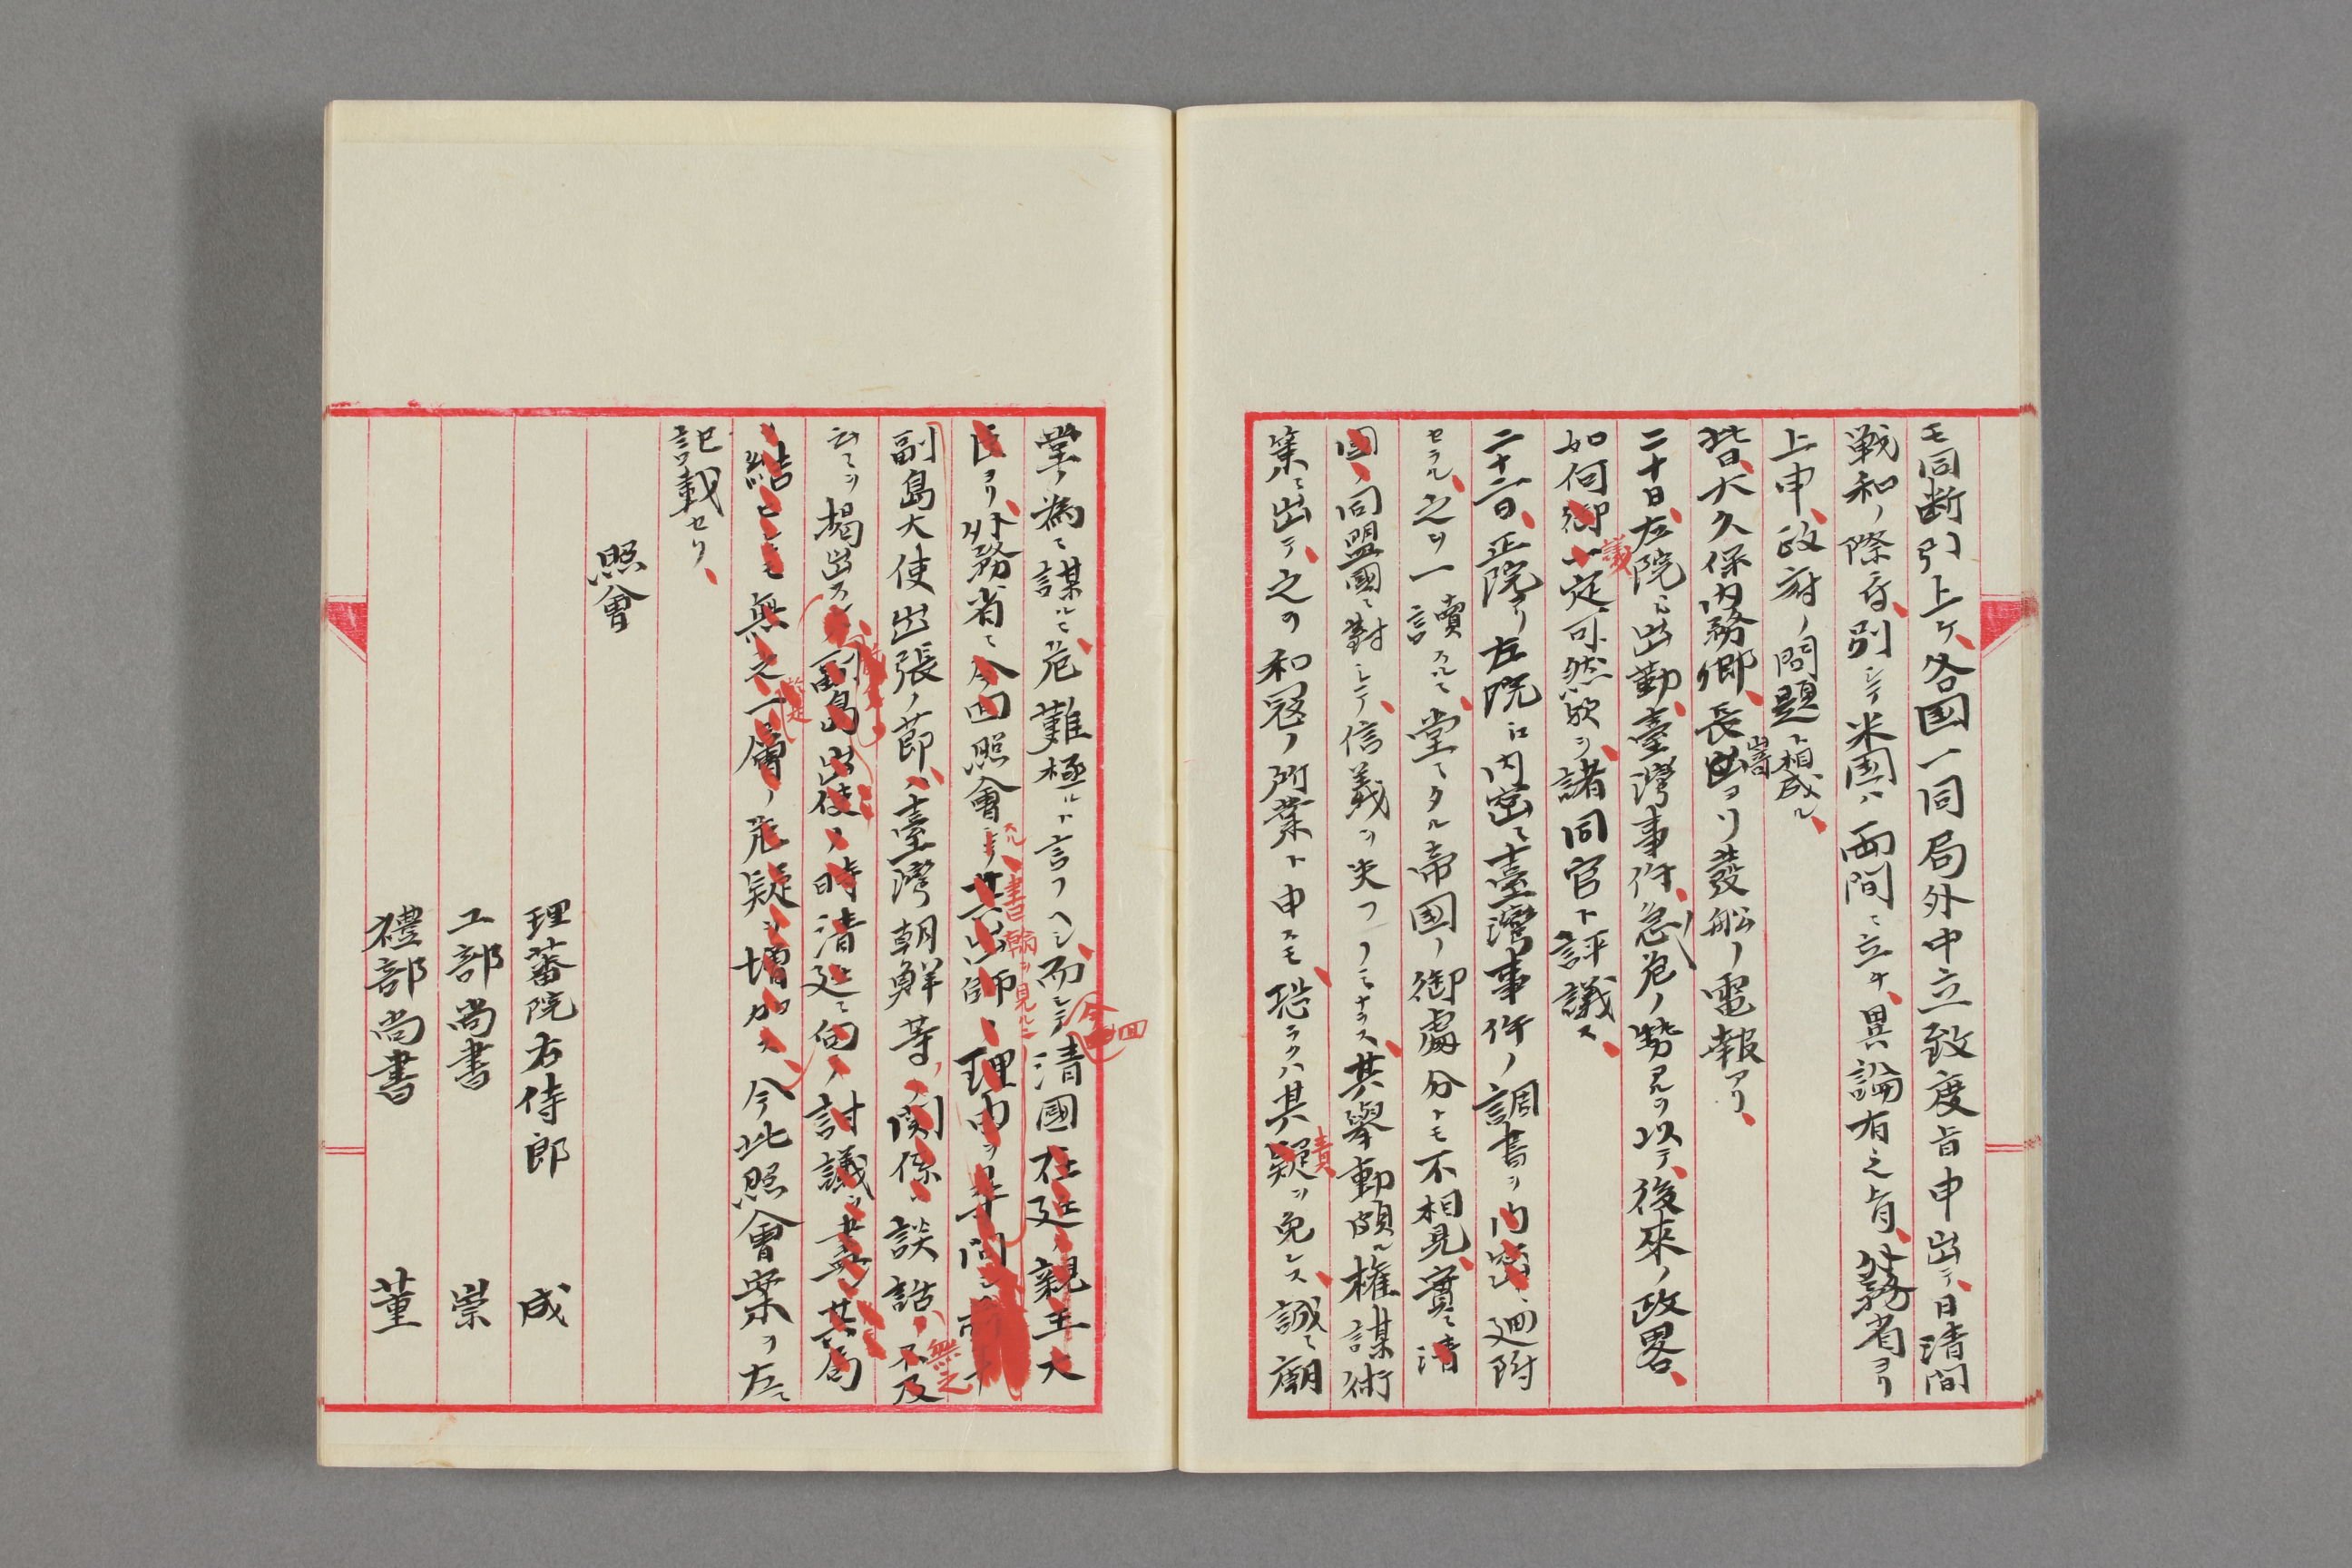 モ同断引上ケ各国一同局外中立致度旨申出テ日清間
戦和ノ際ニ在別シテ米国ハ両間ニ立チ異論有之旨外務省ヨリ
上申政府ノ問題ト相成ル
皆日大久保内務卿長崎ヨリ發船ノ電報アリ
二十日左院ニ出勤臺灣事件急危ノ勢アルヲ以テ後來ノ政畧
如何御議一定可然歟ヲ諸同官ト評議ス
二十二日正院ヨリ左院ニ内密ニ臺灣事件ノ調書ヲ内密ニ廻附
セラル之ヲ一讀スルニ堂々タル帝國ノ御處分トモ不相見實ニ清
國ノ同盟國ニ對シテ信義ヲ失フノミナラス其擧動頗ル權謀術
策ニ出テ之ヲ和冦ノ所業ト申スモ恐ラクハ其疑責ヲ免レス誠ニ廟
堂ノ為ニ謀ルニ危難極ルト言フヘシ而シテ今回清國在廷ノ親王大
臣ヨリ外務省ニ今回照會スル書翰ヲ見ルニ其出師ノ理由ヲ尋問シ
副島大使出張ノ節ハ臺灣朝鮮等ノ関係ハ談話ニ不及無之
ヿヲ掲出ス副島出使ノ時清廷ニ向ノ討議ヲ其局
ヲ結ヒシモ無之一層ノ危疑ヲ増加ス今此照會案ヲ左ニ
記載セリ
照會
理藩院右侍郎　成
工部尚書　崇
禮部尚書　董